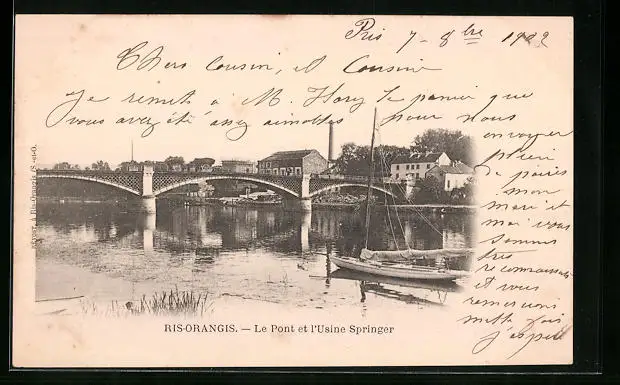 Pris 7 - 8bre 1902
Chers cousin, et Cousine
Je remets à M. Flory le panier que
vous avez été assez aimables pour nous
envoyer
plein
de poires
mon
mari et
moi vous
sommes
très
reconnaissants
et vous
remercions
mille fois
j'espère
RIS-ORANGIS. — Le Pont et l'Usine Springer